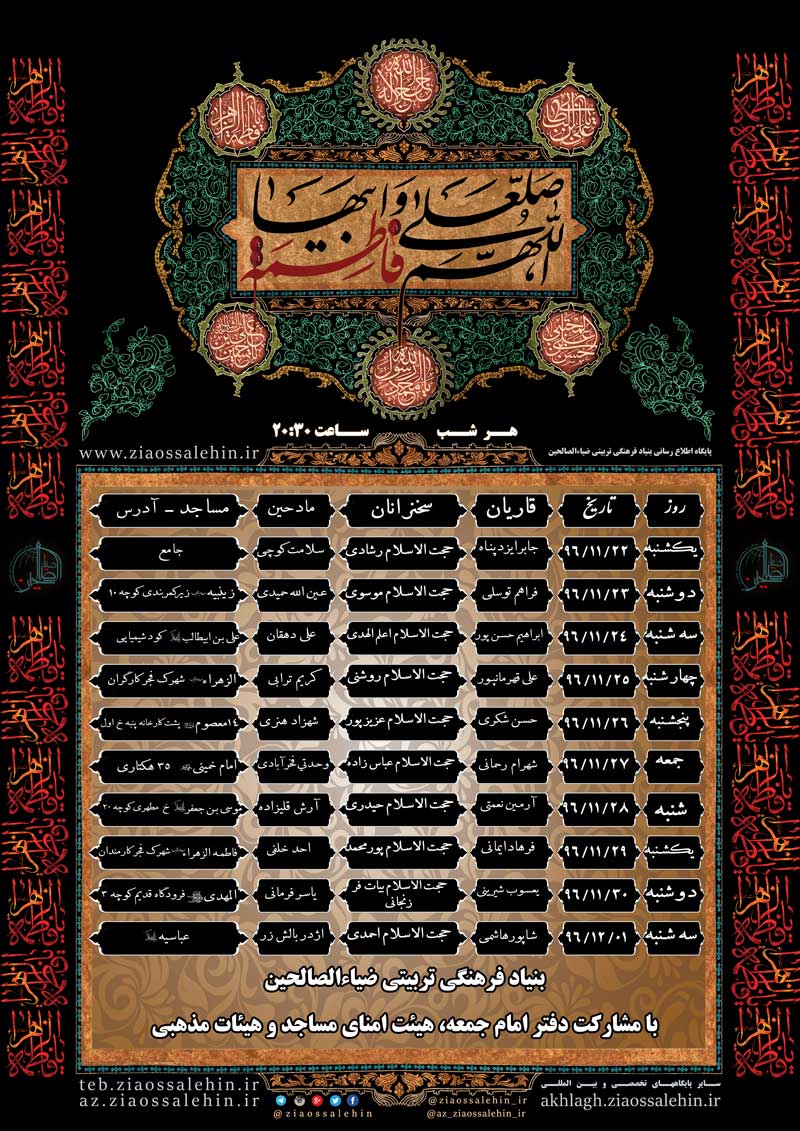 اللهم صل علی فاطمة و ابیها
هر شب ساعت ۲۰:۳۰
پایگاه اطلاع رسانی بنیاد فرهنگی تربیتی ضیاءالصالحین
www.ziaossalehin.ir
روز تاریخ قاریان سخنرانان مادحین مساجد - آدرس
یکشنبه ۹۶/۱۱/۲۲ جابر ایزدپناه حجت الاسلام رشادی سلامت کوچی جامع
دوشنبه ۹۶/۱۱/۲۳ فراهم توسلی حجت الاسلام موسوی عین الله حمیدی زینبیه زیرکمربندی کوچه ۱۰
سه شنبه ۹۶/۱۱/۲۴ ابراهیم حسن پور حجت الاسلام اعلم الهدی علی دهقان علی بن ابیطالب کود شیمیایی
چهارشنبه ۹۶/۱۱/۲۵ علی قهرمانپور حجت الاسلام روشنی کریم ترابی الزهراء شهرک فجر کارگران
پنجشنبه ۹۶/۱۱/۲۶ حسن شکری حجت الاسلام عزیزپور شهزاد هنری ۱۴معصوم پشت کارخانه پنبه خ اول
جمعه ۹۶/۱۱/۲۷ شهرام رحمانی حجت الاسلام عباس زاده وحدتی فخرآبادی امام خمینی ۳۵ هکتاری
شنبه ۹۶/۱۱/۲۸ آرمین نعمتی حجت الاسلام حیدری آرش قلیزاده موسی بن جعفر خ مطهری کوچه ۲۰
یکشنبه ۹۶/۱۱/۲۹ فرهاد ایمانی حجت الاسلام پورمحمد احد خلفی فاطمه الزهراء شهرک فجر کارمندان
دوشنبه ۹۶/۱۱/۳۰ یعسوب شیرینی حجت الاسلام بیات فر زنجانی یاسر فرمانی المهدی فرودگاه قدیم کوچه ۳
سه شنبه ۹۶/۱۲/۰۱ شاپور هاشمی حجت الاسلام احمدی اژدر بالش زر عباسیه
بنیاد فرهنگی تربیتی ضیاءالصالحین
با مشارکت دفتر امام جمعه، هیئت امنای مساجد و هیئات مذهبی
سایر پایگاههای تخصصی و بین المللی
teb.ziaossalehin.ir
az.ziaossalehin.ir
@ziaossalehin
@ziaossalehin_ir
@az_ziaossalehin_ir
akhlagh.ziaossalehin.ir